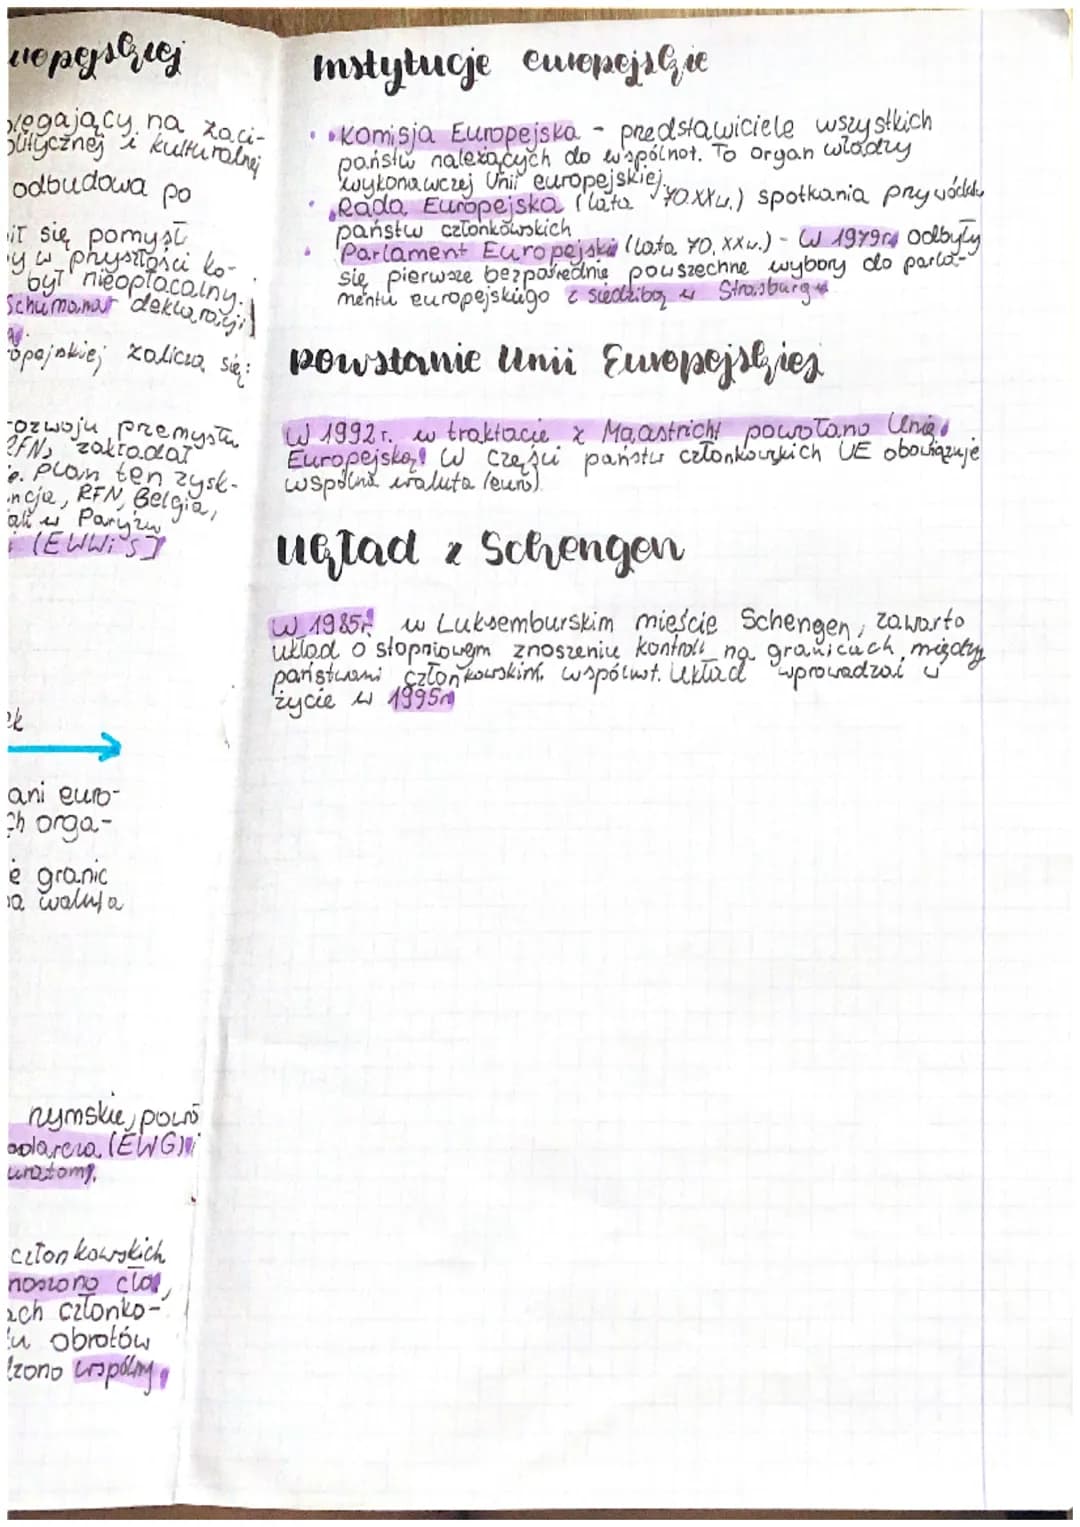 uropejskiej
olegający na zaci-
olitycznej i kulturalnej
odbudowa po
ił się pomysł
y w przyszłości ko-
był nieopłacalny.
Schumana deklaracji
opejskiej zalicza się:
rozwoju przemysłu
RFN, zakładał
e. Plan ten zysk-
ncja, RFN, Belgia,
ali w Paryżu
i (EWWiS)
ek
ani euro-
ch orga-
e granic
na waluta
rzymskie, powo
podarcza (EWG) i
uratom).
członkowskich
noszono cła,
ach członko-
tu obrotów
dzono wspólny
Instytucje europejskie
• Komisja Europejska - przedstawiciele wszystkich
państw należących do wspólnot. To organ władzy
wykonawczej Unii europejskiej.
• Rada Europejska (lata 70.XXw.) spotkania przywódców
państw członkowskich
• Parlament Europejski (lata 70. XXw.) - W 1979r. odbyły
się pierwsze bezpośrednie powszechne wybory do parla-
mentu europejskiego z siedzibą w Strasburgu
Powstanie Unii Europejskiej
W 1992r. w traktacie z Maastricht powołano Unię
Europejską! W części państw członkowskich UE obowiązuje
wspólna waluta (euro)
Układ z Schengen
W 1985r. w Luksemburskim mieście Schengen, zawarto
układ o stopniowym znoszeniu kontroli na granicach między
państwami członkowskimi wspólnot. Układ wprowadzał w
życie w 1995r